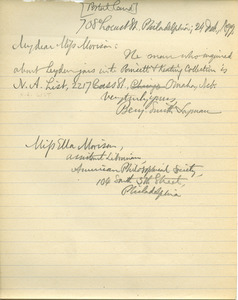 [Postal Card]
708 Locust St. Philadelphia; 24 Feb., 1897.
My dear Miss Morison:
The man who inquired
about Leyden jars into Poinsett & Keating Collection is
N. A. List, 2217 Cass St, Omaha, Neb.
Very truly yours,
Benj. Smith Lyman
Miss Ella Morison,
assistant Librarian,
American Philosophical Society,
104 South 5th Street,
Philadelphia